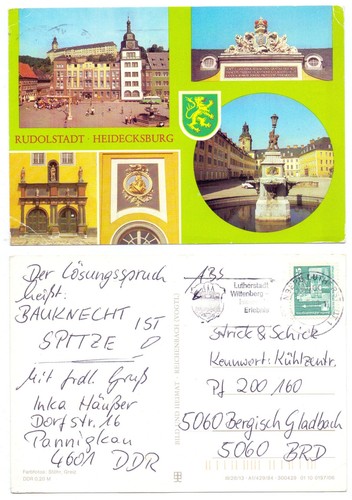 RUDOLSTADT · HEIDECKSBURG
ABS
Der Lösungsspruch
heißt:
BAUKNECHT IST
SPITZE
Mit frdl. Gruß
Inka Häußer
Dorfstr. 16
Pannigkau
4601 DDR
Lutherstadt
Wittenberg -
Erlebnis
Strick & Schick
Kennwort: Kühlzentr.
Pf 200 160
5060 Bergisch Gladbach
5060 BRD
BILD UND HEIMAT REICHENBACH (VOGTL)